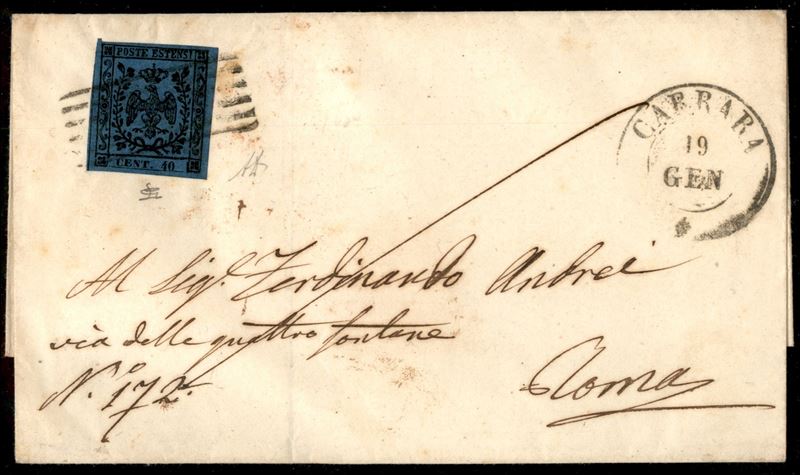 POSTE ESTENSI
CENT. 40
CARRARA
19
GEN
Al Sigr. Ferdinando Andrei
via delle quattro fontane
N.o 172.
Roma